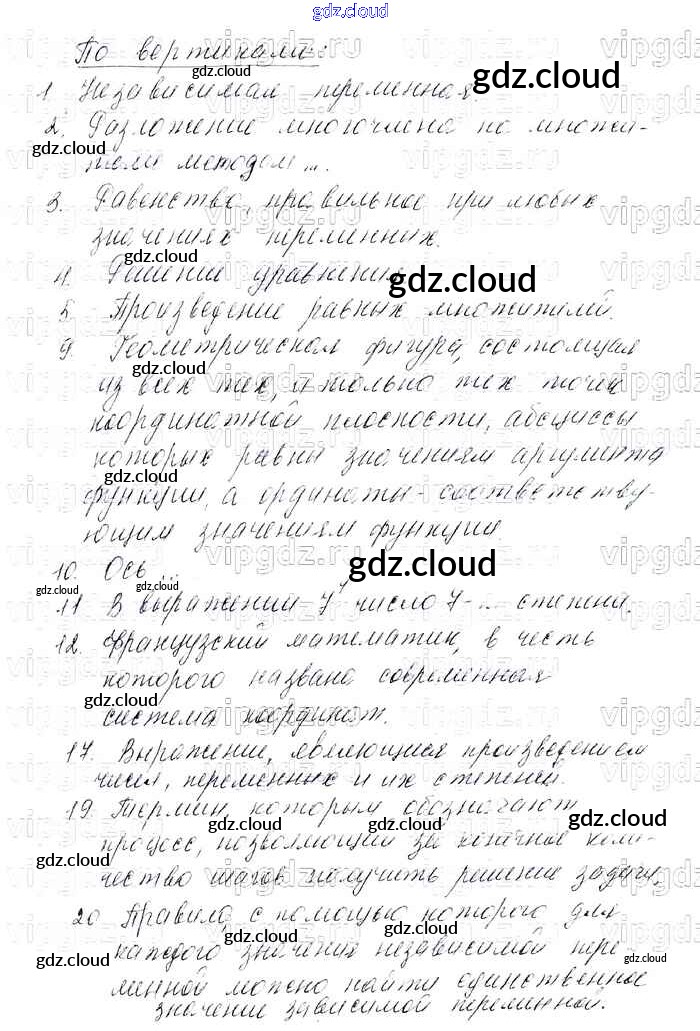 gdz.cloud
По вертикали:
1. Независимая переменная.
2. Разложение многочлена на множи-
тели методом ... .
3. Равенство, правильное при любых
значениях переменных.
4. Решение уравнения.
5. Произведение равных множителей.
9. Геометрическая фигура, состоящая
из всех тех, и только тех точек
координатной плоскости, абсциссы
которых равны значениям аргумента
функции, а ординаты соответству-
ющим значениям функции.
10. Ось ...
11. В выражении 7 число 7 - ... степени.
12. Французский математик, в честь
которого названа современная
система координат.
17. Выражение, являющиеся произведением
чисел, переменных и их степеней.
19. Термин, которым обозначают
процесс, позволяющий за конечное коли-
чество шагов получить решение задачи.
20. Правило, с помощью которого для
каждого значения независимой пере-
менной можно найти единственное
значение зависимой переменной.